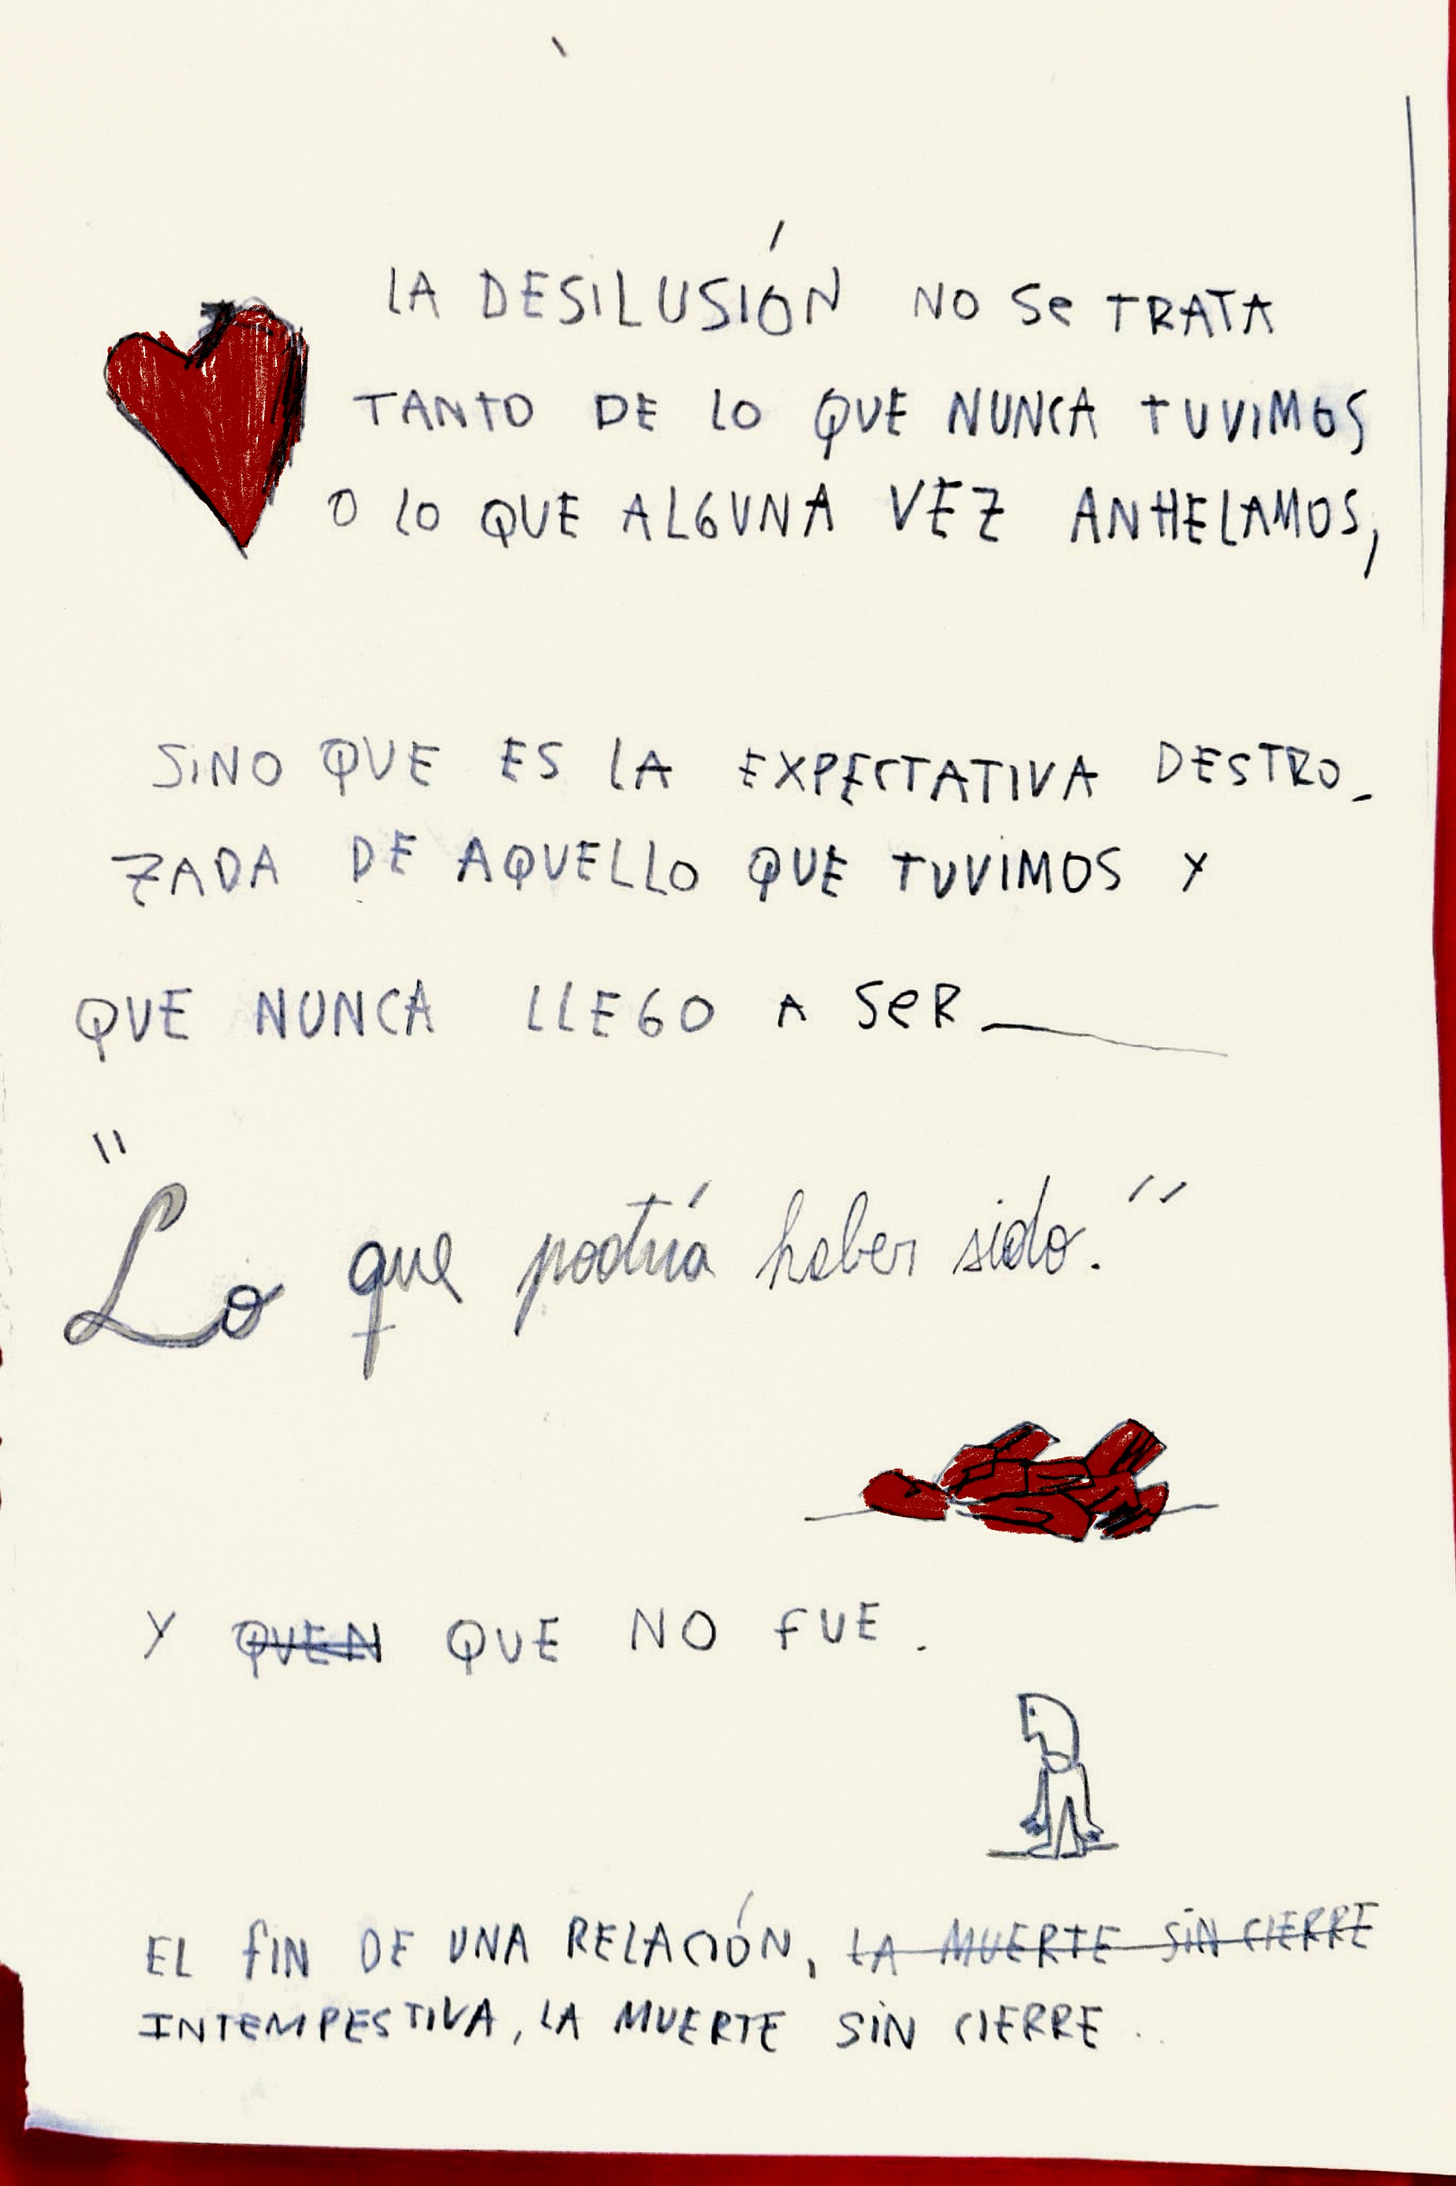 LA DESILUSIÓN NO Se TRATA
TANTO DE LO QUE NUNCA TUVIMOS
O LO QUE ALGUNA VEZ ANHELAMOS,
SINO QUE ES LA EXPECTATIVA DESTRO-
ZADA DE AQUELLO QUE TUVIMOS Y
QUE NUNCA LLEGO A SeR
"Lo que podría haber sido."
Y QUEN QUE NO FUE.
EL FIN DE UNA RELACIÓN, LA MUERTE SIN CIERRE
INTEMPESTIVA, LA MUERTE SIN CIERRE..